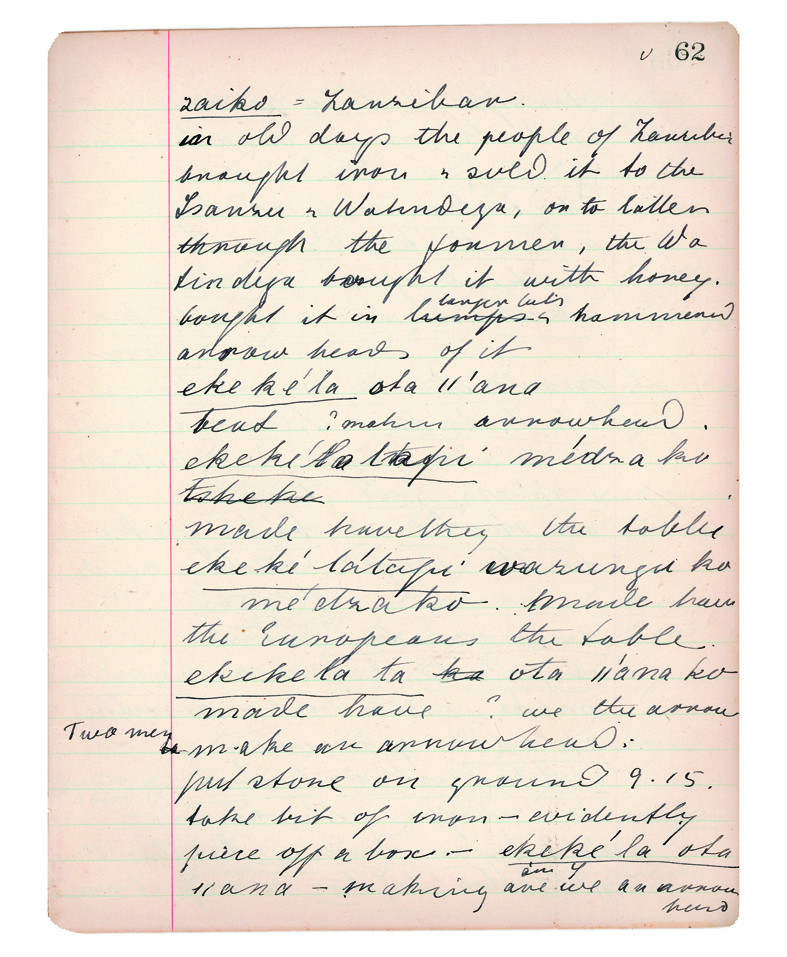 v 62
zaiko = Zanzibar.
in old days the people of Zanzibar
brought iron & sold it to the
Isanzu & Watindega, or to latter
through the
tindega bought it with honey.
bought it in lumps & hammered
arrow heads of it
ekeké'la ota 11'ana
beat ? makes arrowhead.
ekeké'la médza ko
tsheke
made have they the table
ekeké látapi wazungu ko
médzako. made have
the Europeans the table.
ekekela ta ko ota 11'ana ko
made have ? we the arrow
Two men
make an arrowhead:
put stone on ground 9.15.
take bit of iron - evidently
piece off a box - ekeké'la ota
11ana - making are we an arrow
head